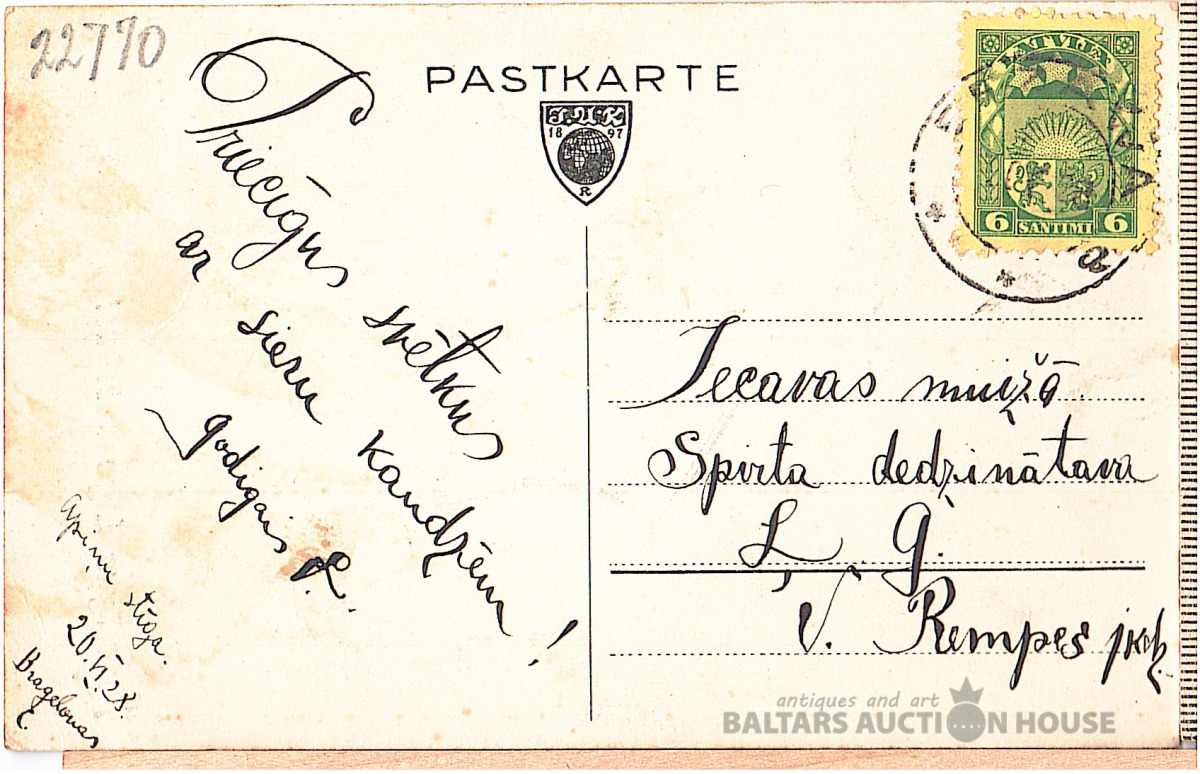 22770
PASTKARTE
J.U.K
18 97
R
LATVIJA
6 SANTIMI 6
Priecīgus svētkus
ar sieru kandžēm!
godīgais
Apiņu stīga.
20.VI.28.
Iecavas muižā.
Spirta dedzinātava
Ļ. G.
V. Rempes jkdz.
antiques and art
BALTARS AUCTION HOUSE